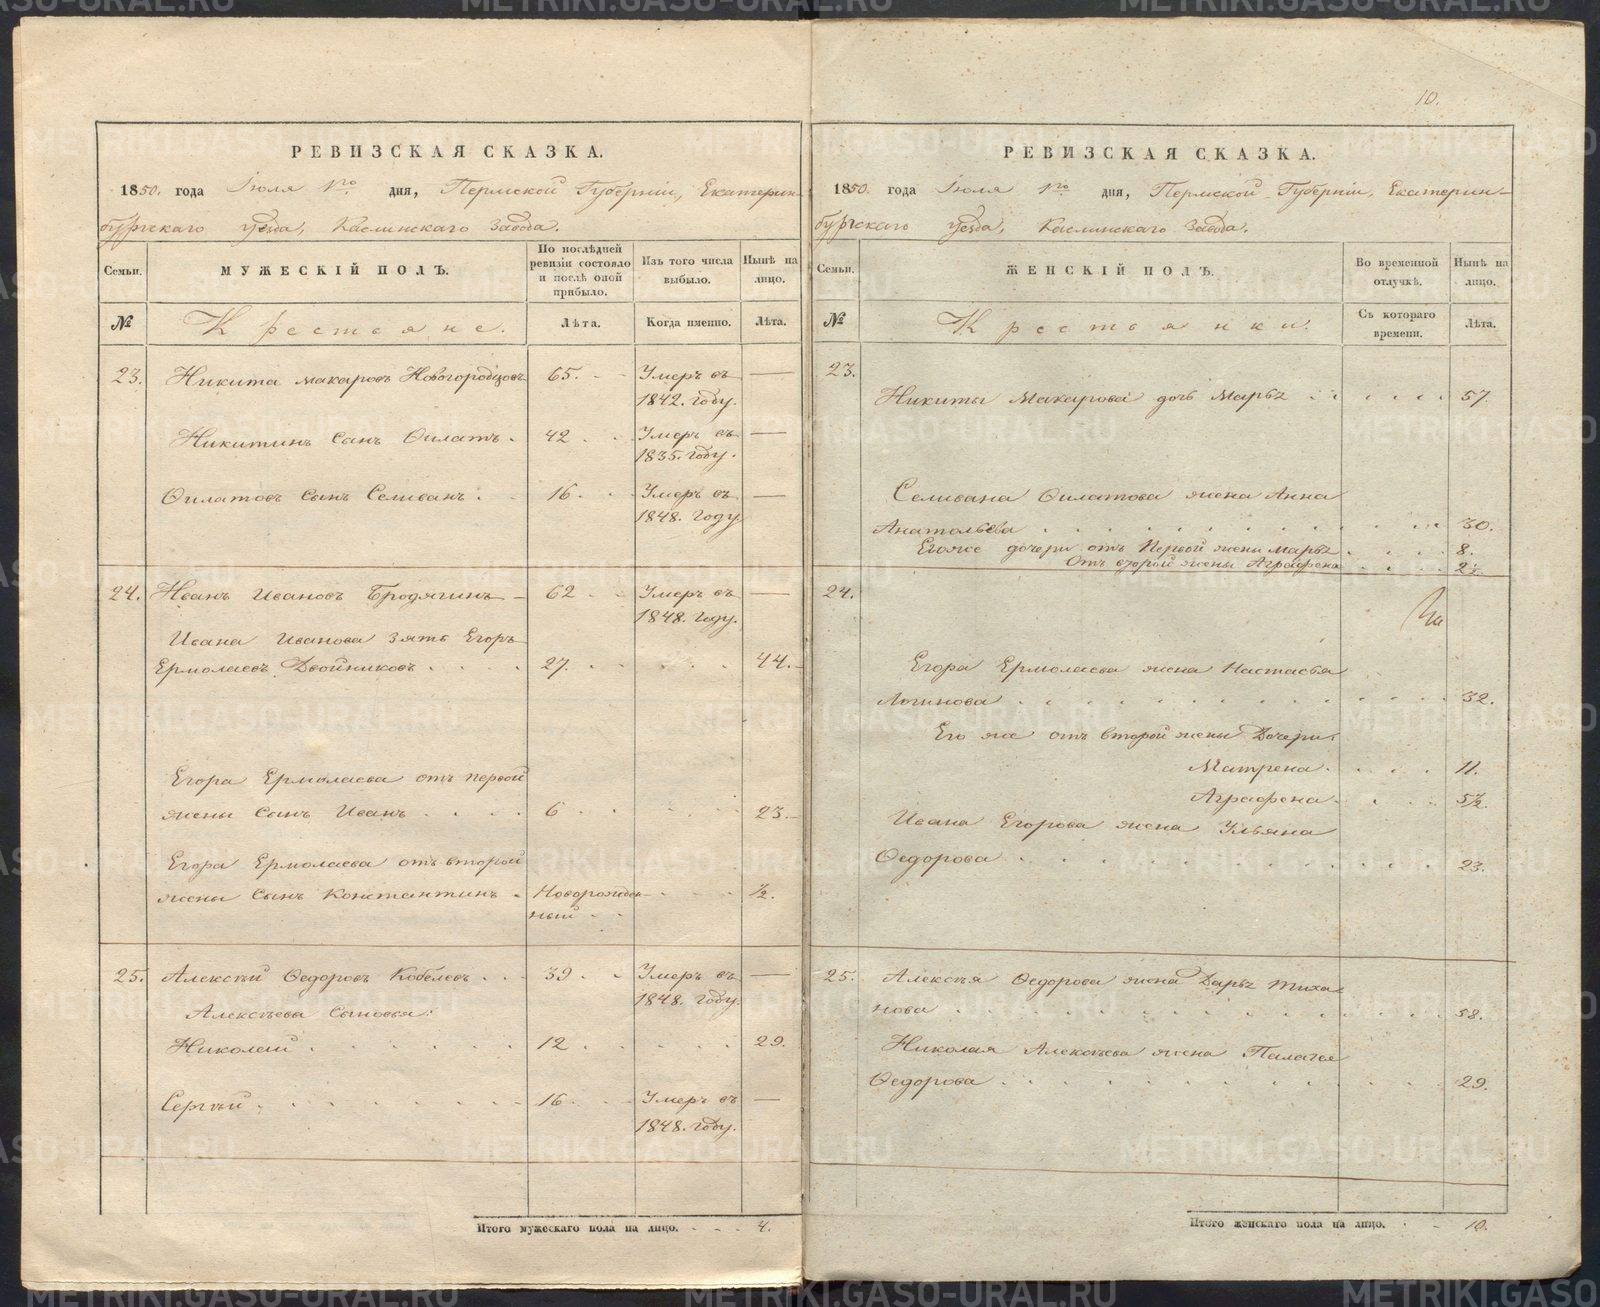 РЕВИЗСКАЯ СКАЗКА.
1850. года Іюля 1го дня, Пермской Губерніи, Екатерин-
бургскаго уезда, Каслинскаго Завода.
Семьи.
МУЖЕСКІЙ ПОЛЪ.
По послѣдней ревизіи состояло и послѣ оной прибыло.
Изъ того числа выбыло.
Нынѣ на лицо.
№
Крестьяне.
Лѣта.
Когда именно.
Лѣта.
23. Никита Макаровъ Новогородцовъ 65. Умеръ въ —
1842. году.
Никитинъ Сынъ Филатъ. 42 Умеръ въ —
1835. году.
Филатовъ Сынъ Селиванъ. 16. Умеръ въ —
1848. году
24. Иванъ Ивановъ Бродягинъ 62 Умеръ въ —
1848. году.
Ивана Иванова зять Егоръ
Ермолаевъ Двойниковъ 27. 44.
Егора Ермолаева отъ первой
жены Сынъ Иванъ 6 23.
Егора Ермолаева отъ второй
жены Сынъ Константинъ. Новорожден- ½.
ный
25. Алексѣй Федоровъ Кобелевъ 39 Умеръ въ —
1848. году.
Алексѣева Сыновья:
Николай 12 29.
Сергѣй 16 Умеръ въ —
1848. году.
Итого мужескаго пола на лицо. 4.
10.
РЕВИЗСКАЯ СКАЗКА.
1850. года Іюля 1го дня, Пермской Губерніи, Екатерин-
бургскаго уезда, Каслинскаго Завода.
Семьи.
ЖЕНСКІЙ ПОЛЪ.
Во временной отлучкѣ.
Нынѣ на лицо.
№
Крестьянки.
Съ котораго времени.
Лѣта.
23.
Никиты Макарова дочь Марья 57.
Селивана Филатова жена Анна
Анатольева 30.
Егоже дочери отъ Первой жены Марья 8.
Отъ второй жены Аграфена 2½.
24.
Егора Ермолаева жена Настасья
Логинова 32.
Его же отъ второй жены Дочери:
Матрена. 11.
Аграфена 5½.
Ивана Егорова жена Ульяна
Федорова 23.
25. Алексѣя Федорова жена Дарья Тиха-
нова 58.
Николая Алексѣева жена Палагея
Федорова 29.
Итого женскаго пола на лицо. 10.
METRIKI.GASO-URAL.RU